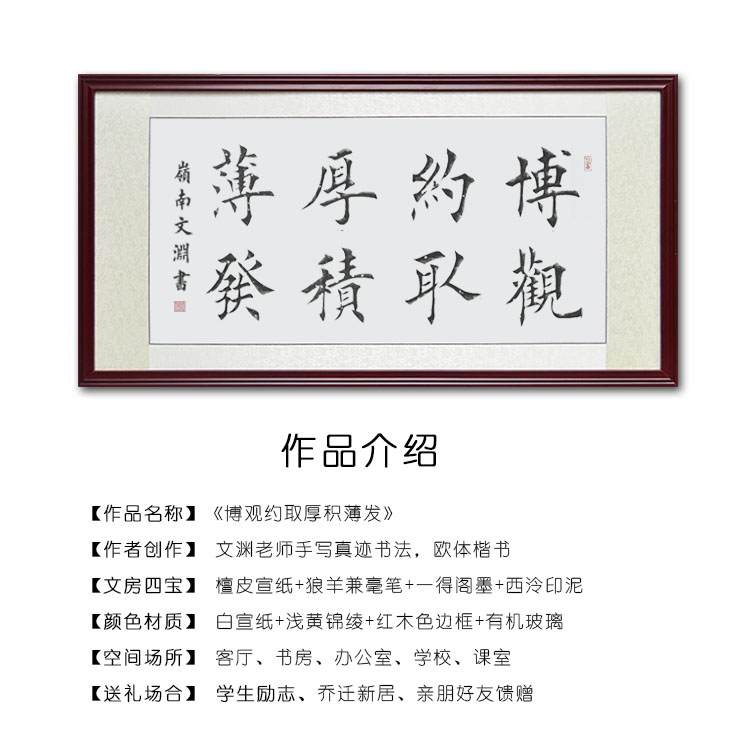 博觀
約取
厚積
薄發
嶺南文淵書
作品介绍
【作品名称】《博观约取厚积薄发》
【作者创作】 文渊老师手写真迹书法，欧体楷书
【文房四宝】 檀皮宣纸+狼羊兼毫笔+一得阁墨+西泠印泥
【颜色材质】 白宣纸+浅黄锦绫+红木色边框+有机玻璃
【空间场所】 客厅、书房、办公室、学校、课室
【送礼场合】 学生励志、乔迁新居、亲朋好友馈赠